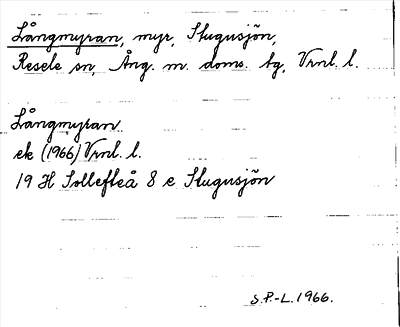 Långmyran, myr, Stugusjön,
Resele sn, Ång. m. doms. bg, Vrnl. l.
Långmyran
ek (1966) Vrnl. l.
19 H Sollefteå 8 e Stugusjön
S.P.-L. 1966.